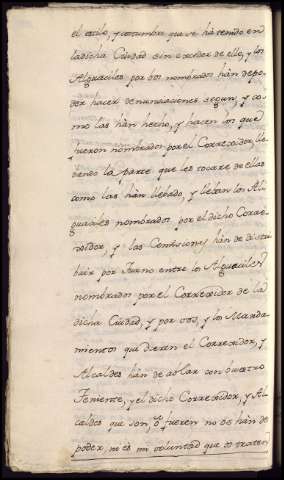 el estilo, y costumbre que se há tenido en
la dicha Ciudad sin exceder de ello, y los
Alguaciles por vos nombrados hán de po-
der hacer denunciaciones segun, y co-
mo las hán hecho, y hacen los que
fueron nombrados por el Correxidor, lle-
bando la parte que les tocare de ellas
como las hán llebado, y lleban los Al-
guaciles nombrados por el dicho Corre-
xidor, y las Comisiones hán de distri-
buir por Turno entre los Alguaciles
nombrados por el Correxidor de la
dicha Ciudad, y por vos, y los Manda-
mientos que dieren el Correxidor, y
Alcaldes hán de hablar con buestro
Teniente, y el dicho Correxidor, y Al-
caldes que son, ó fueren no os hán de
poder, ni es mi voluntad que os traten